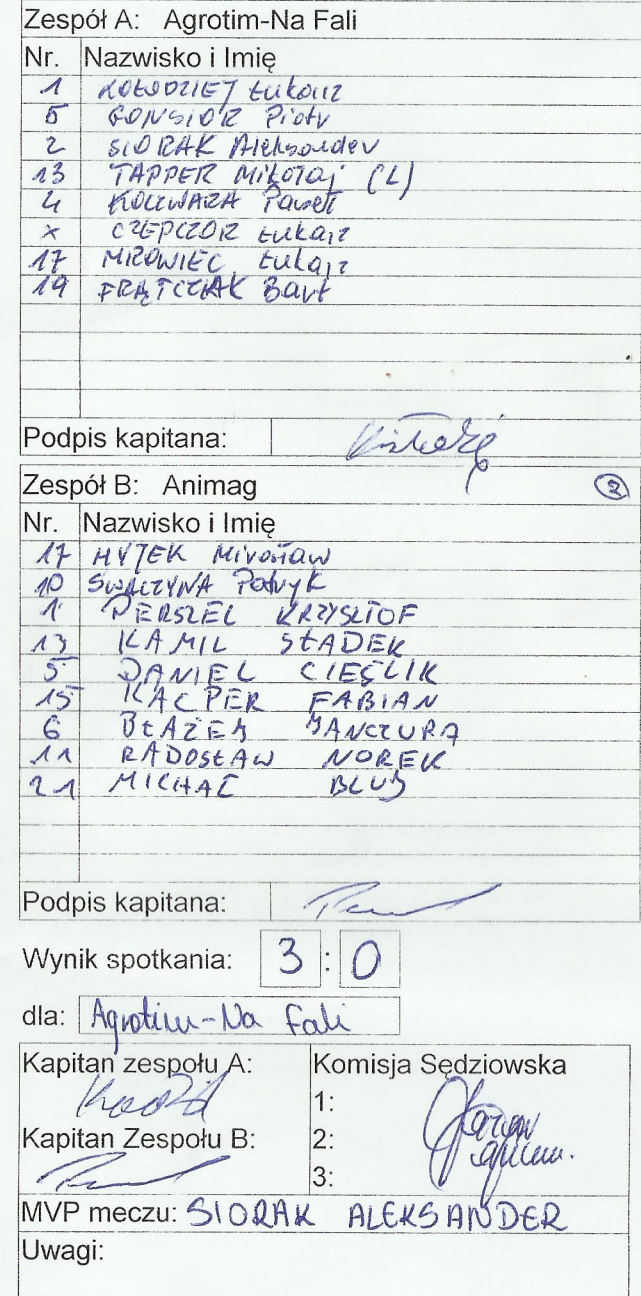 Zespół A: Agrotim-Na Fali
Nr. Nazwisko i Imię
1 KOŁODZIEJ Łukasz
5 GONSIOR Piotr
2 SIORAK Aleksander
13 TAPPER Mikołaj (L)
4 Paweł
x CZEPCZOR Łukasz
17 MROWIEC Łukasz
19 FRĄTCZAK Bart
Podpis kapitana:
Zespół B: Animag
Nr. Nazwisko i Imię
17 HYTEK Mirosław
10 SWACZYNA Patryk
1 PERSZEL KRZYSZTOF
13 KAMIL SŁADEK
5 DANIEL CIEŚLIK
15 KACPER FABIAN
6 BŁAŻEJ JANCZURA
11 RADOSŁAW NOREK
21 MICHAŁ BLUJ
Podpis kapitana:
Wynik spotkania: 3 : 0
dla: Agrotim-Na Fali
Kapitan zespołu A: Komisja Sędziowska
1:
Kapitan Zespołu B: 2:
3:
MVP meczu: SIORAK ALEKSANDER
Uwagi: